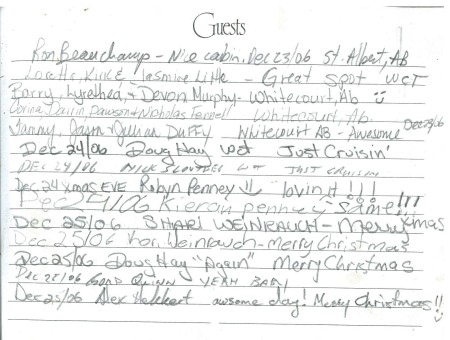 Guests
Ron Beauchamp - Nice cabin. Dec 23/06 St. Albert, AB
Loretta, Kirk & Jasmine Little - Great spot WCT
Barry, Lyrethea, & Devon Murphy - Whitecourt, Ab
Corina, Darrin, Dawson & Nicholas Fennell Whitecourt, Ab.
Tammy, & Duffy Whitecourt AB - Awesome Dec 23/06
Dec 24/06 Doug Hay wct Just Cruisin'
Dec 24/06 Nick Just Cruisin
Dec 24 xmas EVE Robyn Penney lovin it !!!
Dec 24/06 Kieran penney - same!!!
Dec 25/06 SHARI WEINRAUCH - Merry xmas
Dec 25/06 Weinrauch - merry Christmas
Dec 25/06 Doug Hay "Again" Merry Christmas
Dec 25/06 Quinn YEAH BABY
Dec 25/06 Alex awsome day! Merry Christmas!!